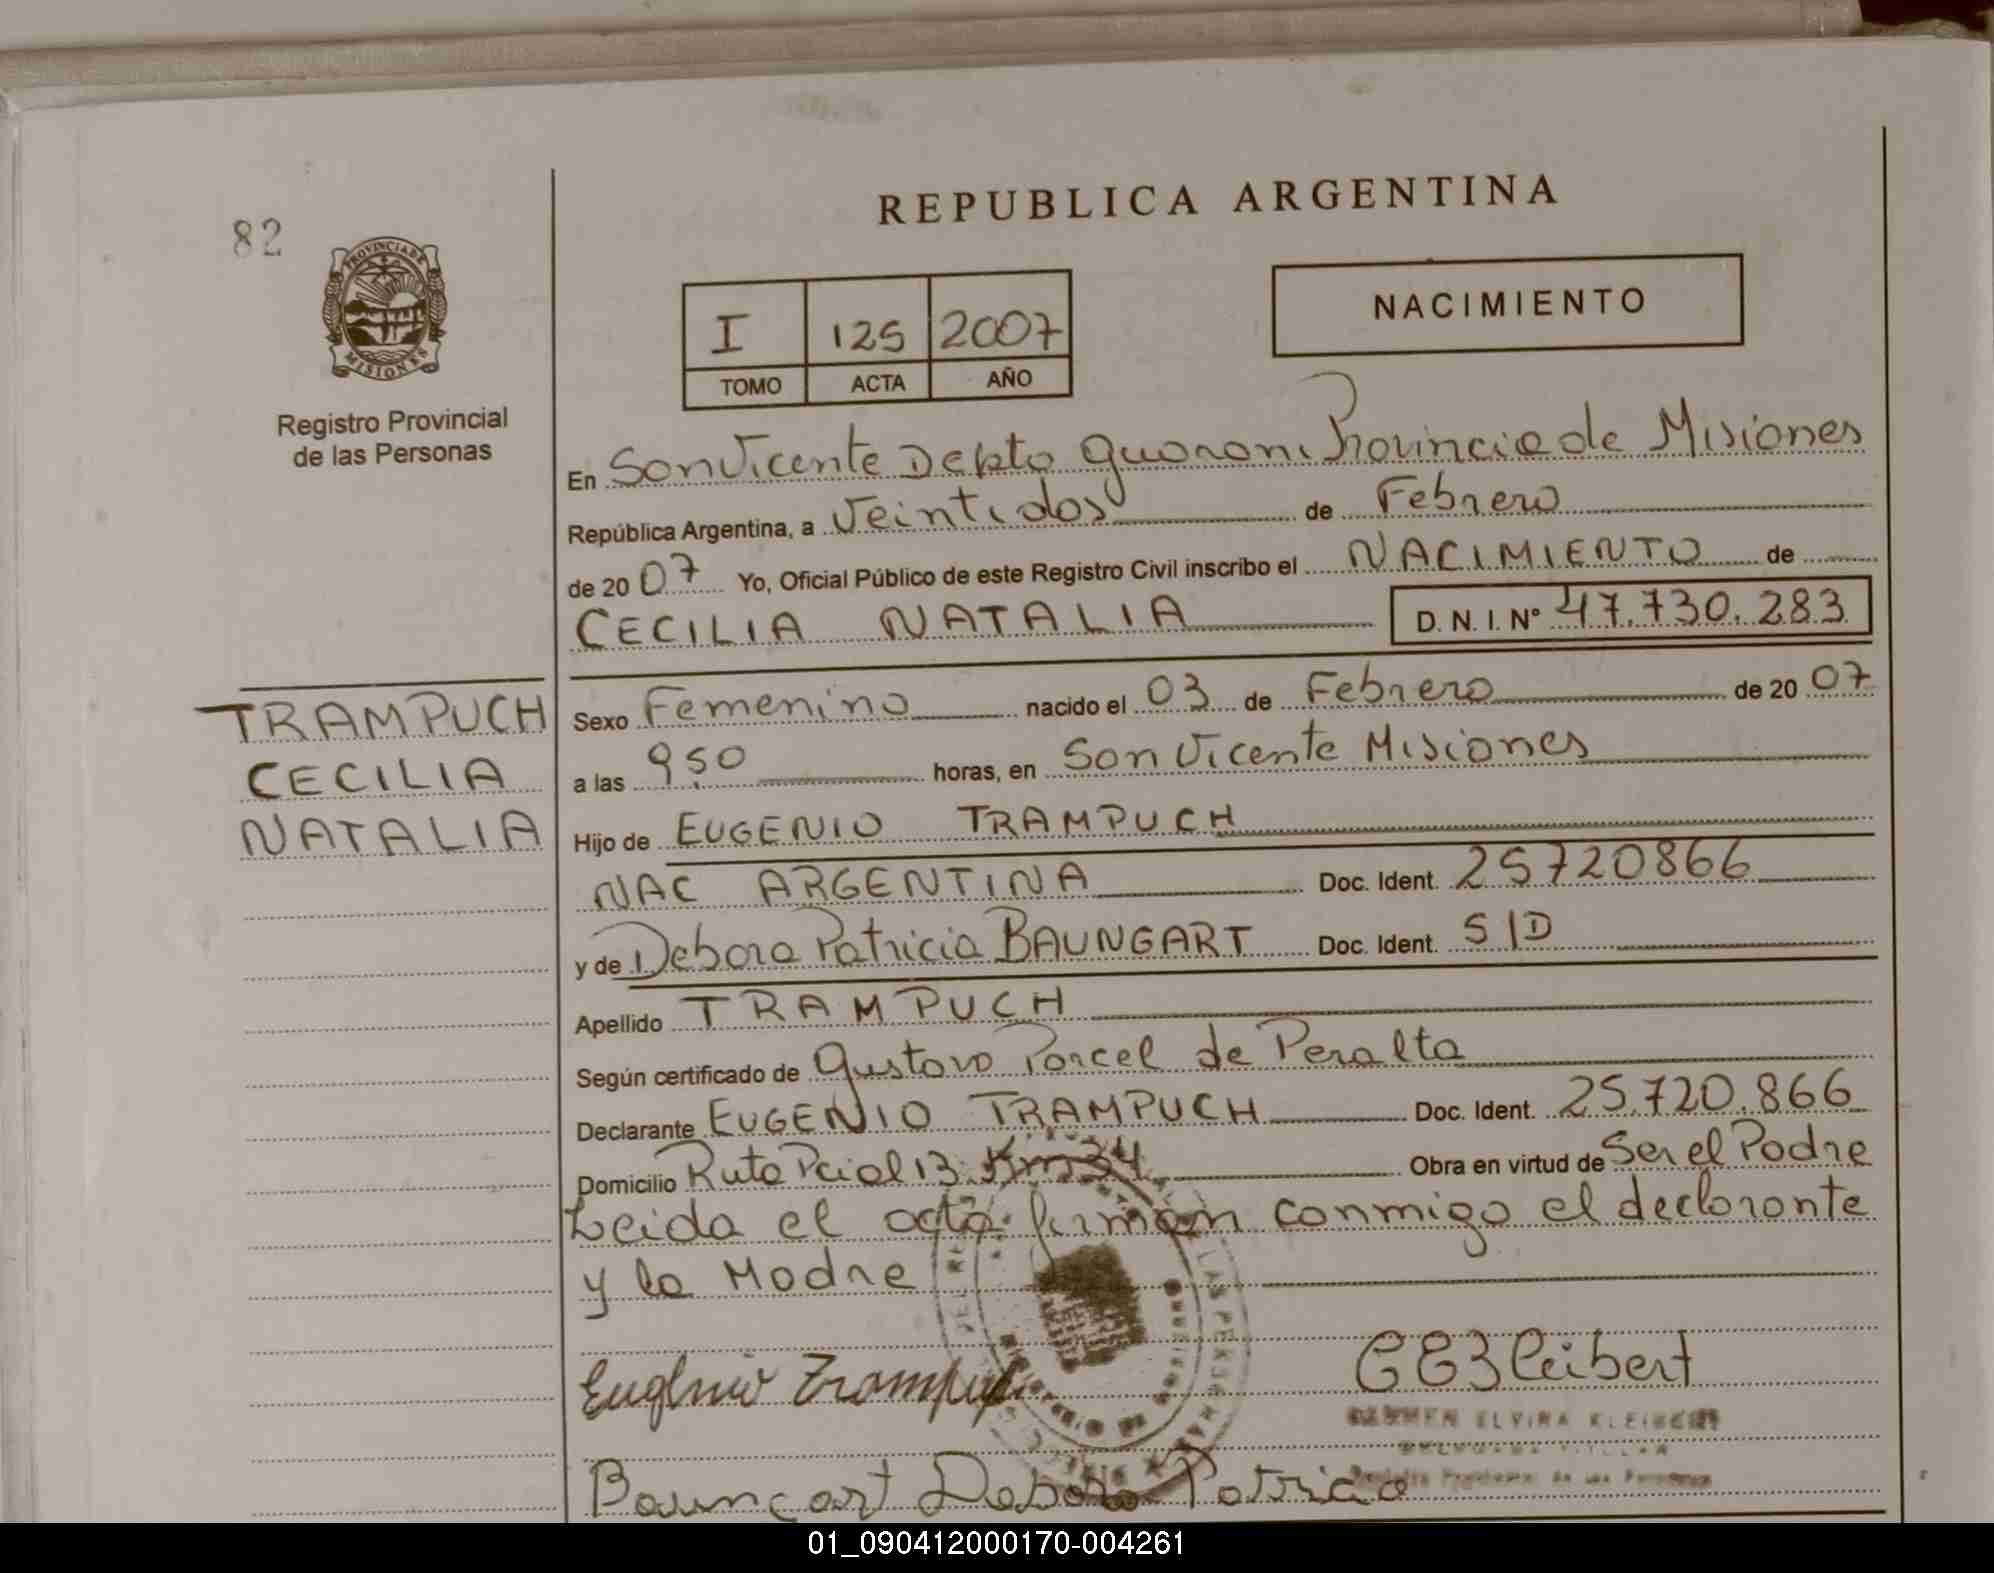 82
PROVINCIA DE
MISIONES
Registro Provincial
de las Personas
REPUBLICA ARGENTINA
I 125 2007
TOMO ACTA AÑO
NACIMIENTO
En San Vicente Depto Guarani Provincia de Misiones
República Argentina, a Veintidos de Febrero
de 20 07 Yo, Oficial Público de este Registro Civil inscribo el NACIMIENTO de
CECILIA NATALIA D. N. I. Nº 47.730.283
TRAMPUCH
CECILIA
NATALIA
Sexo Femenino nacido el 03 de Febrero de 20 07
a las 9.50 horas, en San Vicente Misiones
Hijo de EUGENIO TRAMPUCH
NAC ARGENTINA Doc. Ident. 25720866
y de Debora Patricia BAUNGART Doc. Ident. S/D
Apellido TRAMPUCH
Según certificado de Gustavo Porcel de Peralta
Declarante EUGENIO TRAMPUCH Doc. Ident. 25.720.866
Domicilio Ruta Pcial 13 Km 34 Obra en virtud de Ser el Padre
Leida el acta firman conmigo el declarante
y la Madre
Eugenio Trampuch
CEKleibert
CARMEN ELVIRA KLEIBERT
LAS PERSONAS
Baungart Debora Patricia
01_090412000170-004261